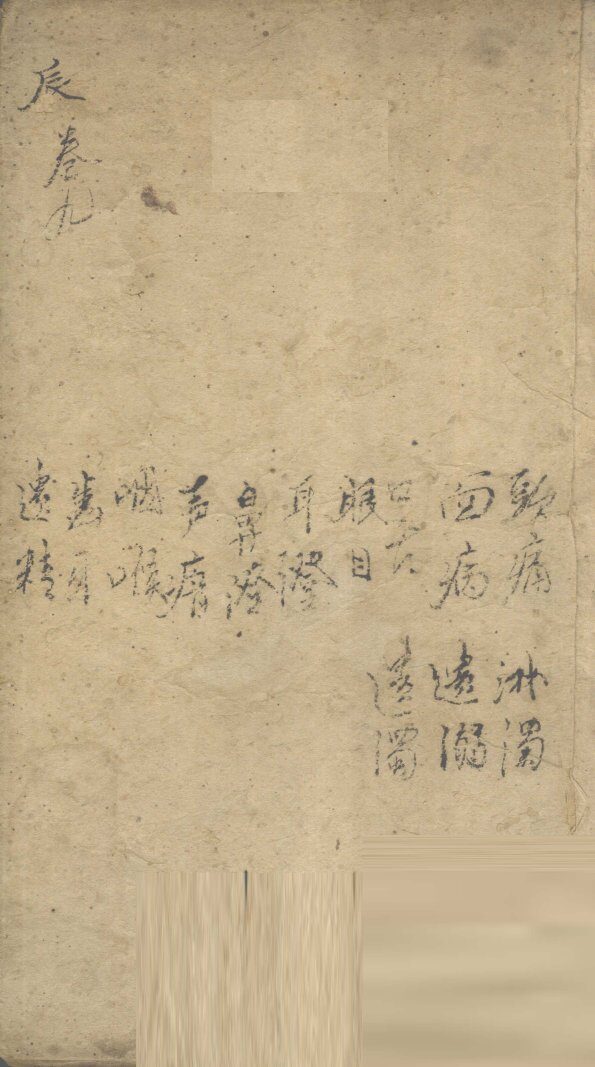 辰
卷九
頭痛
面病
口舌
眼目
耳證
鼻證
声瘖
咽喉
齒牙
遺精
淋濁
遺溺
遺濁